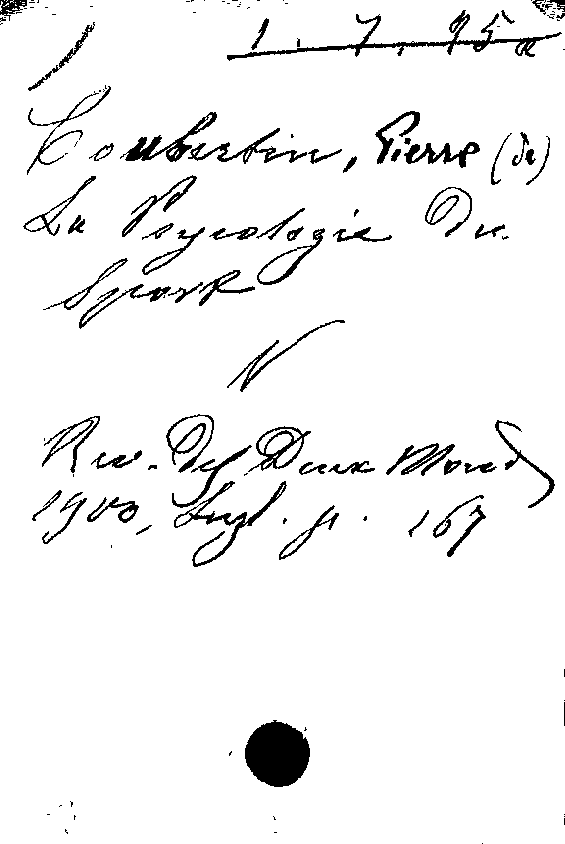 1.7.95a
Coubertin, Pierre (de)
La Psycologie du
Sport
N
Rev. des Deux Mond
1900, Lugl. p. 167